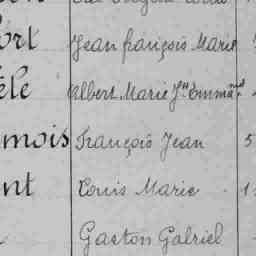 ort Jean françois Marie
èle Albert Marie Jh Emmanel
mois François Jean 5
nt Louis Marie 1
Gaston Gabriel